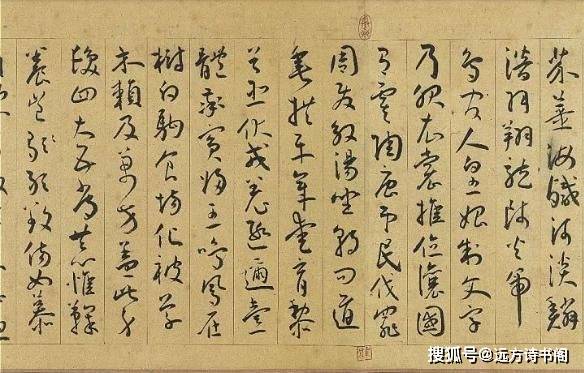 芥薑海鹹河淡鱗
潛羽翔龍師火帝
鳥官人皇始制文字
乃服衣裳推位讓國
有虞陶唐弔民伐罪
周發殷湯坐朝問道
垂拱平章愛育黎
首臣伏戎羌遐邇壹
體率賓歸王鳴鳳在
樹白駒食場化被草
木賴及萬方蓋此身
髮四大五常恭惟鞠
養豈敢毀傷女慕
搜狐号@远方诗书阁